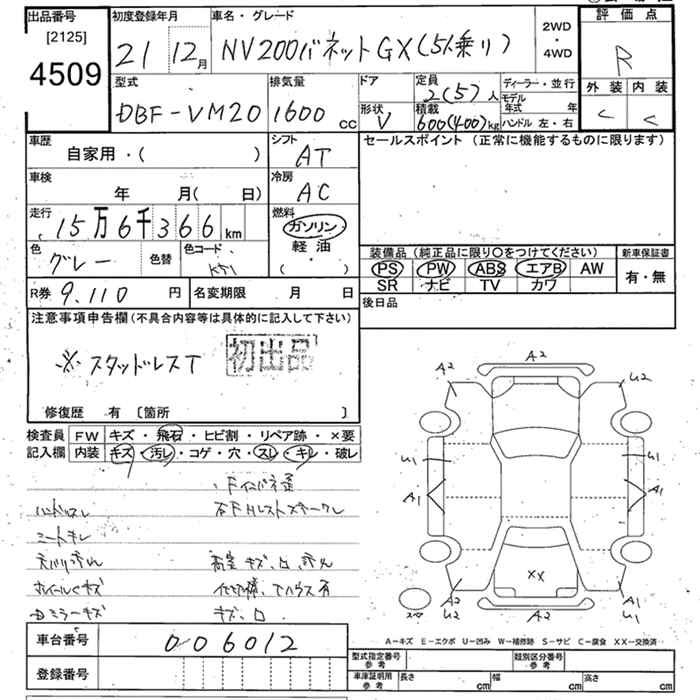 出品番号
[2125]
4509
初度登録年月
21 12月
車名・グレード
NV200バネットGX(5人乗り)
2WD
・
4WD
評価点
R
外装 内装
C C
型式
DBF-VM20
排気量
1600 cc
ドア
形状
V
定員
2(5)人
積載
600(400)kg
ディーラー・並行
モデル
年式 年
ハンドル 左・右
車歴
自家用・( )
シフト
AT
セールスポイント(正常に機能するものに限ります)
車検
年 月(日)
冷房
AC
走行
15万6千366km
燃料
ガソリン
軽油
( )
色
グレー
色替
色コード
K51
装備品(純正品に限り○をつけてください)
PS PW ABS エアB AW
SR ナビ TV カワ
新車保証書
有・無
R券 9,110円
名変期限 月 日
後日品
注意事項申告欄(不具合内容等は具体的に記入して下さい)
※スタッドレスT
初出品
修復歴 有 〔箇所 〕
検査員
記入欄
FW キズ・飛石・ヒビ割・リペア跡・×要
内装 キズ・汚レ・コゲ・穴・スレ・キレ・破レ
ハンドルスレ
シートキレ
ホイールキズ
ミラーキズ
キズ、凹
A2
A2
U2
U1
A1
U1
A1
XX
A2
U2
A2
A1
U1
A-キズ E-エクボ U-凹み W-補修跡 S-サビ C-腐食 XX-交換済
車台番号
006012
登録番号
型式指定番号
参考
類別区分番号
参考
車庫証明用
参考
長さ cm
幅 cm
高さ cm